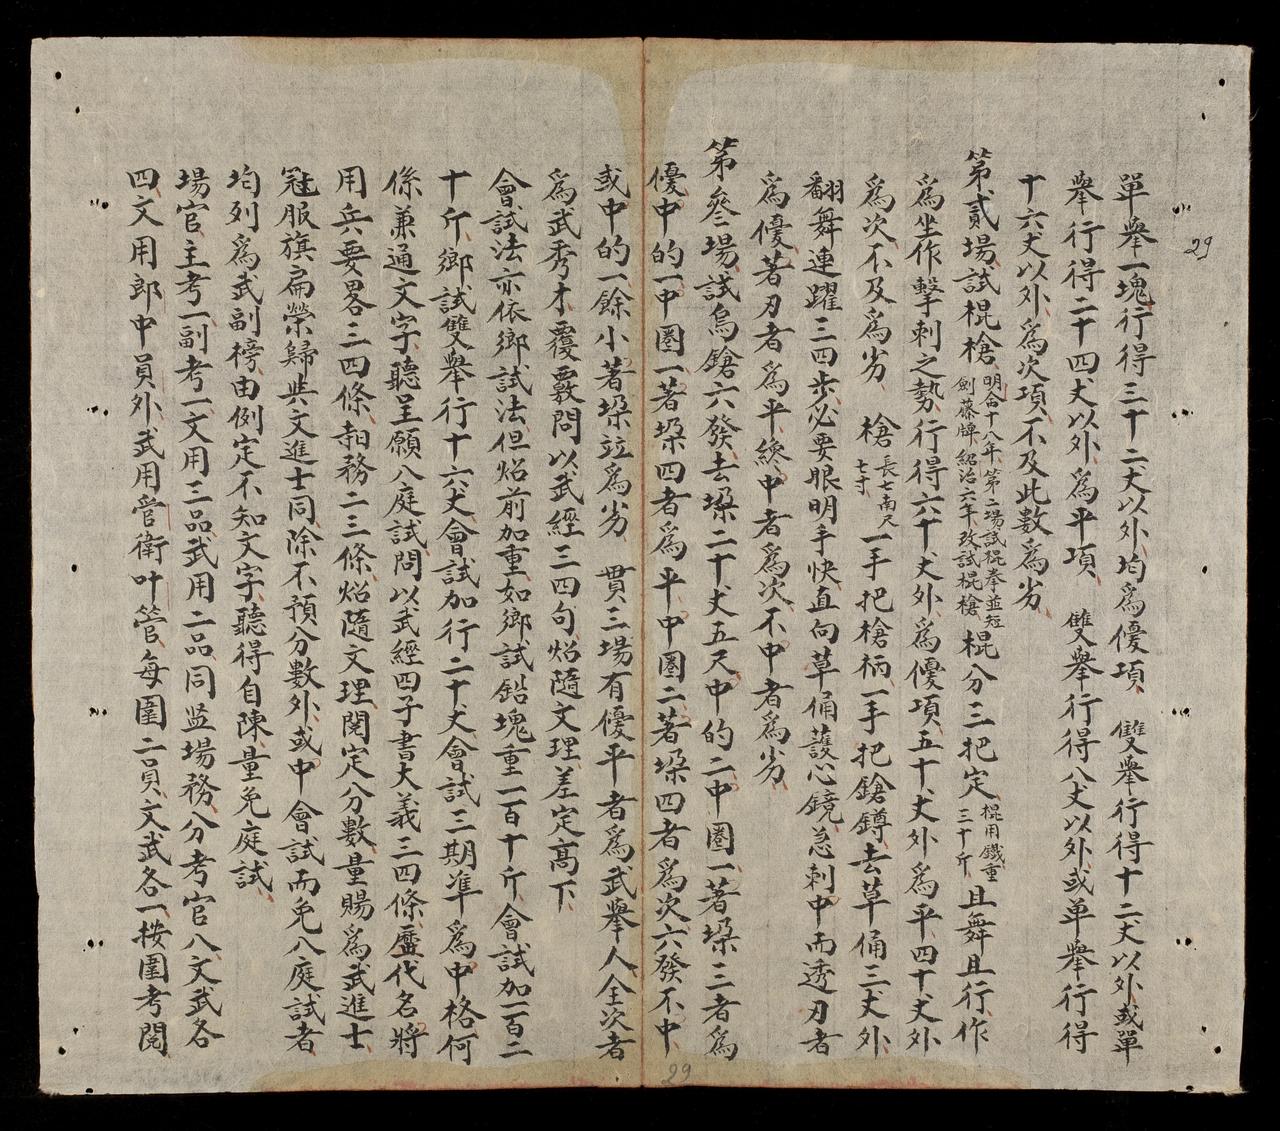 29
單舉一塊行得三十二丈以外均爲優項 雙舉行得十二丈以外或單
舉行得二十四丈以外爲平項 雙舉行得八丈以外或单舉行得
十六丈以外爲次項不及此數爲劣
第貳塲試棍槍明命十八年第二塲試棍拳並短
劍藤牌紹治六年改試棍槍棍分三把定棍用鐵重
三十斤且舞且行作
爲坐作擊刺之勢行得六十丈外爲優項五十丈外爲平四十丈外
爲次不及爲劣 槍長七南尺
七寸一手把槍柄一手把鎗鐏去草俑三丈外
翻舞連躍三四步必要眼明手快直向草俑護心鏡急刺中而透刃者
爲優著刃者爲平纔中者爲次不中者爲劣
第叄塲試鳥鎗六發去垜二十丈五尺中的二中圈一著垜三者爲
優中的一中圈一著垜四者爲平中圈二著垜四者爲次六發不中
或中的一餘小著垜竝爲劣 貫三塲有優平者爲武舉人全次者
爲武秀才覆覈問以武經三四句炤隨文理差定高下
會試法亦依鄉試法但炤前加重如鄉試鉛塊重一百十斤會試加一百二
十斤鄉試雙舉行十六丈會試加行二十丈會試三期準爲中格何
係兼通文字聽呈願入庭試問以武經四子書大義三四條歷代名將
用兵要畧三四條𣇞務二三條炤隨文理閱定分數量賜爲武進士
冠服旗扁榮歸與文進士同除不預分數外或中會試而免入庭試者
均列爲武副榜由例定不知文字聽得自陳量免庭試
塲官主考一副考一文用三品武用二品同監塲務分考官八文武各
四文用郎中員外武用管衛叶管每圍二員文武各一按圍考閱
29